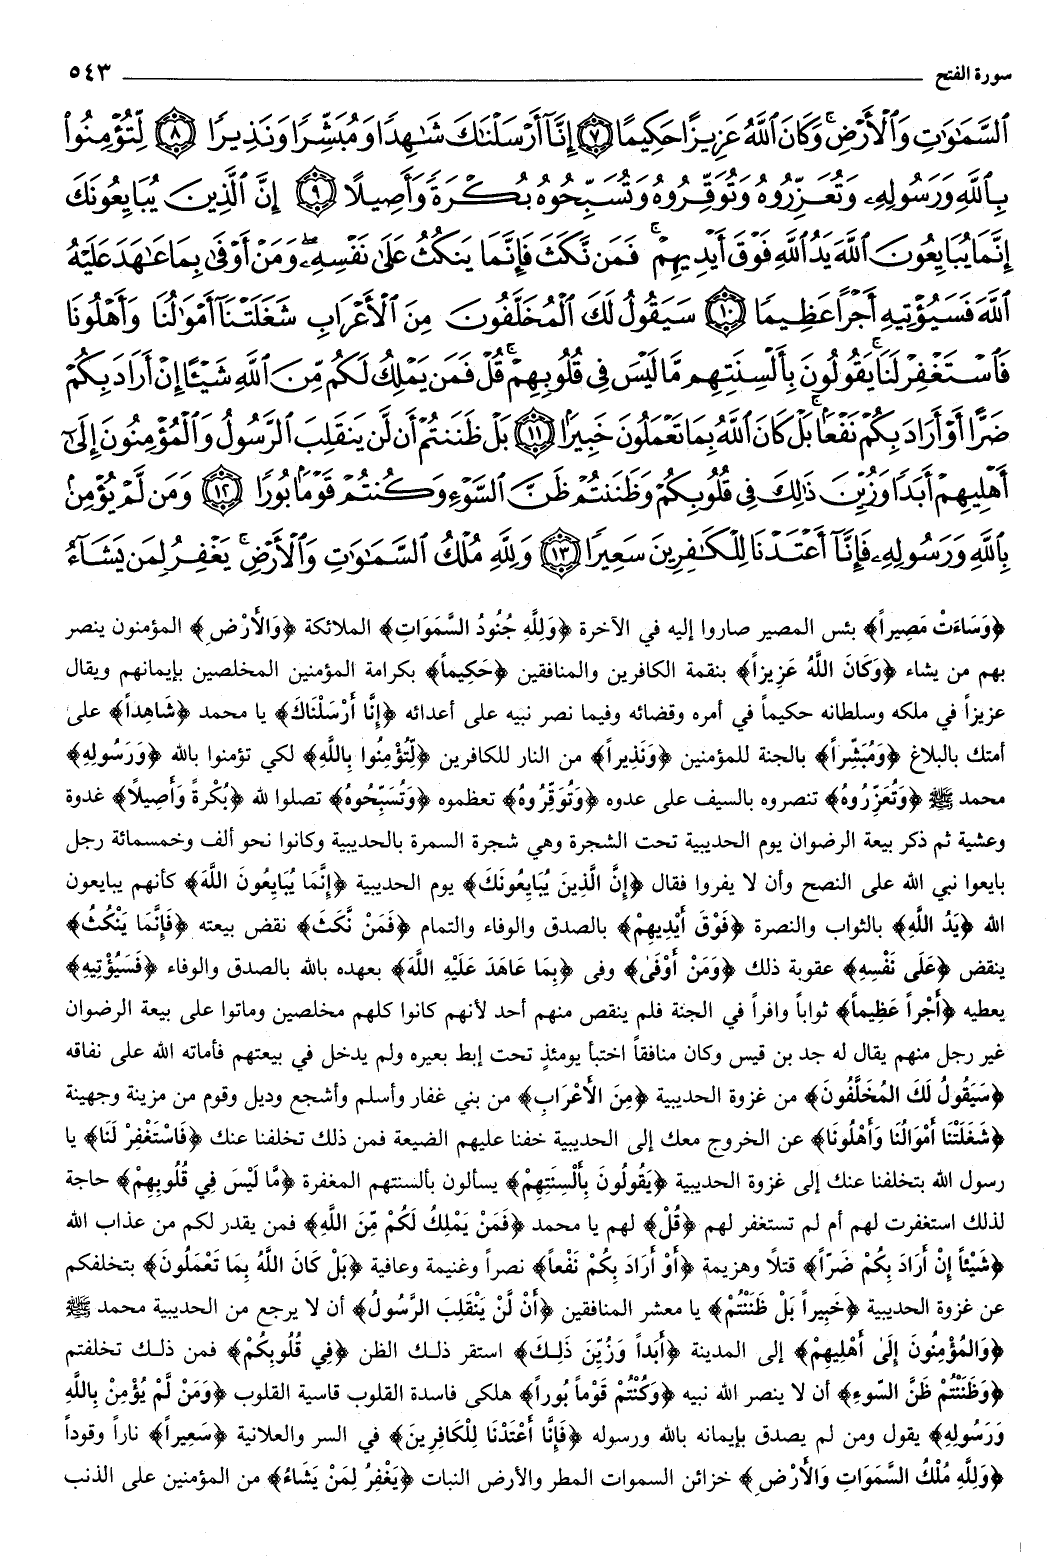 سورة الفتح ٥٤٣
ٱلسَّمَٰوَٰتِ وَٱلْأَرْضِۚ وَكَانَ ٱللَّهُ عَزِيزًا حَكِيمًا ٧ إِنَّآ أَرْسَلْنَٰكَ شَٰهِدًا وَمُبَشِّرًا وَنَذِيرًا ٨ لِّتُؤْمِنُوا۟
بِٱللَّهِ وَرَسُولِهِۦ وَتُعَزِّرُوهُ وَتُوَقِّرُوهُ وَتُسَبِّحُوهُ بُكْرَةً وَأَصِيلًا ٩ إِنَّ ٱلَّذِينَ يُبَايِعُونَكَ
إِنَّمَا يُبَايِعُونَ ٱللَّهَ يَدُ ٱللَّهِ فَوْقَ أَيْدِيهِمْۚ فَمَن نَّكَثَ فَإِنَّمَا يَنكُثُ عَلَىٰ نَفْسِهِۦۖ وَمَنْ أَوْفَىٰ بِمَا عَٰهَدَ عَلَيْهُ
ٱللَّهَ فَسَيُؤْتِيهِ أَجْرًا عَظِيمًا ١٠ سَيَقُولُ لَكَ ٱلْمُخَلَّفُونَ مِنَ ٱلْأَعْرَابِ شَغَلَتْنَآ أَمْوَٰلُنَا وَأَهْلُونَا
فَٱسْتَغْفِرْ لَنَاۚ يَقُولُونَ بِأَلْسِنَتِهِم مَّا لَيْسَ فِى قُلُوبِهِمْۚ قُلْ فَمَن يَمْلِكُ لَكُم مِّنَ ٱللَّهِ شَيْـًٔا إِنْ أَرَادَ بِكُمْ
ضَرًّا أَوْ أَرَادَ بِكُمْ نَفْعًۢاۚ بَلْ كَانَ ٱللَّهُ بِمَا تَعْمَلُونَ خَبِيرًۢا ١١ بَلْ ظَنَنتُمْ أَن لَّن يَنقَلِبَ ٱلرَّسُولُ وَٱلْمُؤْمِنُونَ إِلَىٰٓ
أَهْلِيهِمْ أَبَدًا وَزُيِّنَ ذَٰلِكَ فِى قُلُوبِكُمْ وَظَنَنتُمْ ظَنَّ ٱلسَّوْءِ وَكُنتُمْ قَوْمًۢا بُورًا ١٢ وَمَن لَّمْ يُؤْمِنۢ
بِٱللَّهِ وَرَسُولِهِۦ فَإِنَّآ أَعْتَدْنَا لِلْكَٰفِرِينَ سَعِيرًا ١٣ وَلِلَّهِ مُلْكُ ٱلسَّمَٰوَٰتِ وَٱلْأَرْضِۚ يَغْفِرُ لِمَن يَشَآءُ
﴿وَسَاءَتْ مَصِيراً﴾ بئس المصير صاروا إليه في الآخرة ﴿وَلِلَّهِ جُنُودُ السَّمَوَاتِ﴾ الملائكة ﴿وَالأَرْضِ﴾ المؤمنون ينصر
بهم من يشاء ﴿وَكَانَ اللَّهُ عَزِيزاً﴾ بنقمة الكافرين والمنافقين ﴿حَكِيماً﴾ بكرامة المؤمنين المخلصين بإيمانهم ويقال
عزيزاً في ملكه وسلطانه حكيماً في أمره وقضائه وفيما نصر نبيه على أعدائه ﴿إِنَّا أَرْسَلْنَاكَ﴾ يا محمد ﴿شَاهِداً﴾ على
أمتك بالبلاغ ﴿وَمُبَشِّراً﴾ بالجنة للمؤمنين ﴿وَنَذِيراً﴾ من النار للكافرين ﴿لِّتُؤْمِنُوا بِاللَّهِ﴾ لكي تؤمنوا بالله ﴿وَرَسُولِهِ﴾
محمد ﷺ ﴿وَتُعَزِّرُوهُ﴾ تنصروه بالسيف على عدوه ﴿وَتُوَقِّرُوهُ﴾ تعظموه ﴿وَتُسَبِّحُوهُ﴾ تصلوا لله ﴿بُكْرَةً وَأَصِيلاً﴾ غدوة
وعشية ثم ذكر بيعة الرضوان يوم الحديبية تحت الشجرة وهي شجرة السمرة بالحديبية وكانوا نحو ألف وخمسمائة رجل
بايعوا نبي الله على النصح وأن لا يفروا فقال ﴿إِنَّ الَّذِينَ يُبَايِعُونَكَ﴾ يوم الحديبية ﴿إِنَّمَا يُبَايِعُونَ اللَّهَ﴾ كأنهم يبايعون
الله ﴿يَدُ اللَّهِ﴾ بالثواب والنصرة ﴿فَوْقَ أَيْدِيهِمْ﴾ بالصدق والوفاء والتمام ﴿فَمَنْ نَّكَثَ﴾ نقض بيعته ﴿فَإِنَّمَا يَنْكُثُ﴾
ينقض ﴿عَلَى نَفْسِهِ﴾ عقوبة ذلك ﴿وَمَنْ أَوْفَىٰ﴾ وفى ﴿بِمَا عَاهَدَ عَلَيْهِ اللَّهَ﴾ بعهده بالله بالصدق والوفاء ﴿فَسَيُؤْتِيهِ﴾
يعطيه ﴿أَجْراً عَظِيماً﴾ ثواباً وافراً في الجنة فلم ينقص منهم أحد لأنهم كانوا كلهم مخلصين وماتوا على بيعة الرضوان
غير رجل منهم يقال له جد بن قيس وكان منافقاً اختبأ يومئذٍ تحت إبط بعيره ولم يدخل في بيعتهم فأماته الله على نفاقه
﴿سَيَقُولُ لَكَ المُخَلَّفُونَ﴾ من غزوة الحديبية ﴿مِنَ الأَعْرَابِ﴾ من بني غفار وأسلم وأشجع وديل وقوم من مزينة وجهينة
﴿شَغَلَتْنَا أَمْوَالُنَا وَأَهْلُونَا﴾ عن الخروج معك إلى الحديبية خفنا عليهم الضيعة فمن ذلك تخلفنا عنك ﴿فَاسْتَغْفِرْ لَنَا﴾ يا
رسول الله بتخلفنا عنك إلى غزوة الحديبية ﴿يَقُولُونَ بِأَلْسِنَتِهِمْ﴾ يسألون بألسنتهم المغفرة ﴿مَّا لَيْسَ فِي قُلُوبِهِمْ﴾ حاجة
لذلك استغفرت لهم أم لم تستغفر لهم ﴿قُلْ﴾ لهم يا محمد ﴿فَمَنْ يَمْلِكُ لَكُمْ مِّنَ اللَّهِ﴾ فمن يقدر لكم من عذاب الله
﴿شَيْئاً إِنْ أَرَادَ بِكُمْ ضَرّاً﴾ قتلاً وهزيمة ﴿أَوْ أَرَادَ بِكُمْ نَفْعاً﴾ نصراً وغنيمة وعافية ﴿بَلْ كَانَ اللَّهُ بِمَا تَعْمَلُونَ﴾ بتخلفكم
عن غزوة الحديبية ﴿خَبِيراً بَلْ ظَنَنْتُمْ﴾ يا معشر المنافقين ﴿أَنْ لَنْ يَنْقَلِبَ الرَّسُولُ﴾ أن لا يرجع من الحديبية محمد ﷺ
﴿وَالمُؤْمِنُونَ إِلَىٰ أَهْلِيهِمْ﴾ إلى المدينة ﴿أَبَداً وَزُيِّنَ ذَلِكَ﴾ استقر ذلك الظن ﴿فِي قُلُوبِكُمْ﴾ فمن ذلك تخلفتم
﴿وَظَنَنْتُمْ ظَنَّ السَّوءِ﴾ أن لا ينصر الله نبيه ﴿وَكُنْتُمْ قَوْماً بُوراً﴾ هلكى فاسدة القلوب قاسية القلوب ﴿وَمَنْ لَّمْ يُؤْمِنْ بِاللَّهِ
وَرَسُولِهِ﴾ يقول ومن لم يصدق بإيمانه بالله ورسوله ﴿فَإِنَّا أَعْتَدْنَا لِلْكَافِرِينَ﴾ في السر والعلانية ﴿سَعِيراً﴾ ناراً وقوداً
﴿وَلِلَّهِ مُلْكُ السَّمَوَاتِ وَالأَرْضِ﴾ خزائن السموات المطر والأرض النبات ﴿يَغْفِرُ لِمَنْ يَشَاءُ﴾ من المؤمنين على الذنب